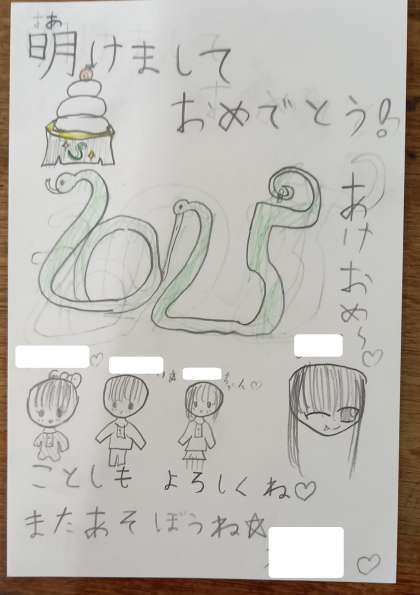 明けまして
おめでとう!
あけおめ〜♡
ことしも よろしくね♡
またあそぼうね☆
♡